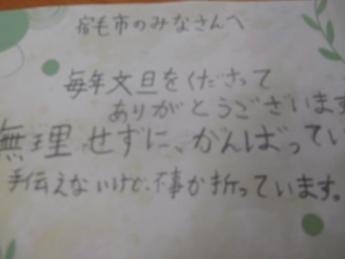 宿毛市のみなさんへ
毎年文旦をくださって
ありがとうございます
無理せずに、かんばってい
手伝えないけど、事か折っています。